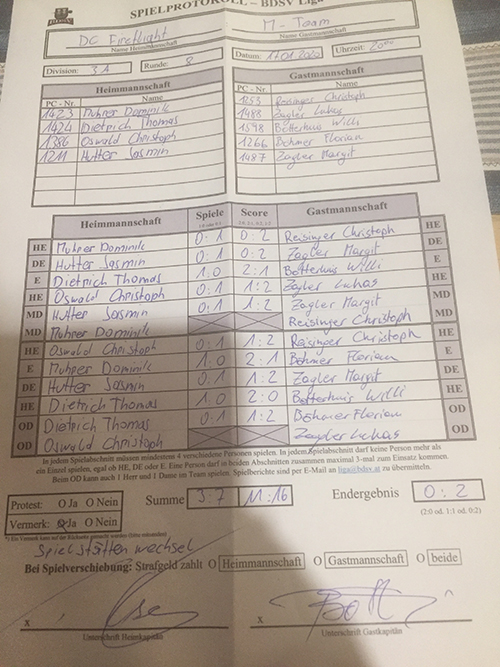 SPIELPROTOKOLL – BDSV Liga
DC Fireflight M-Team
Name Heimmannschaft Name Gastmannschaft
Division: 3A Runde: 8 Datum: 17.01.2020 Uhrzeit: 20:00
Heimmannschaft Gastmannschaft
PC - Nr. Name PC - Nr. Name
1423 Muhrer Dominik 1253 Reisinger Christoph
1424 Dietrich Thomas 1488 Zagler Lukas
1386 Oswald Christoph 1598 Botterhuis Willi
1211 Hutter Jasmin 1266 Böhmer Florian
1487 Zagler Margit
Heimmannschaft Spiele Score Gastmannschaft
HE Muhrer Dominik 0:1 0:2 Reisinger Christoph HE
DE Hutter Jasmin 0:1 0:2 Zagler Margit DE
E Dietrich Thomas 1:0 2:1 Botterhuis Willi E
HE Oswald Christoph 0:1 1:2 Zagler Lukas HE
MD Hutter Jasmin 0:1 1:2 Zagler Margit MD
MD Muhrer Dominik Reisinger Christoph MD
HE Oswald Christoph 0:1 1:2 Reisinger Christoph HE
E Muhrer Dominik 1:0 2:1 Böhmer Florian E
DE Hutter Jasmin 0:1 1:2 Zagler Margit DE
HE Dietrich Thomas 1:0 2:0 Botterhuis Willi HE
OD Dietrich Thomas 0:1 1:2 Böhmer Florian OD
OD Oswald Christoph Zagler Lukas OD
In jedem Spielabschnitt müssen mindestens 4 verschiedene Personen spielen. In jedem Spielabschnitt darf keine Person mehr als
ein Einzel spielen, egal ob HE, DE oder E. Eine Person darf in beiden Abschnitten zusammen maximal 3-mal zum Einsatz kommen.
Beim OD kann auch 1 Herr und 1 Dame im Team spielen. Spielberichte sind per E-Mail an liga@bdsv.at zu übermitteln.
Protest: O Ja O Nein Summe 3:7 11:16 Endergebnis 0:2
Vermerk: O Ja O Nein (2:0 od. 1:1 od. 0:2)
Spielstätten wechsel
Bei Spielverschiebung: Strafgeld zahlt O Heimmannschaft O Gastmannschaft O beide
x x
Unterschrift Heimkapitän Unterschrift Gastkapitän